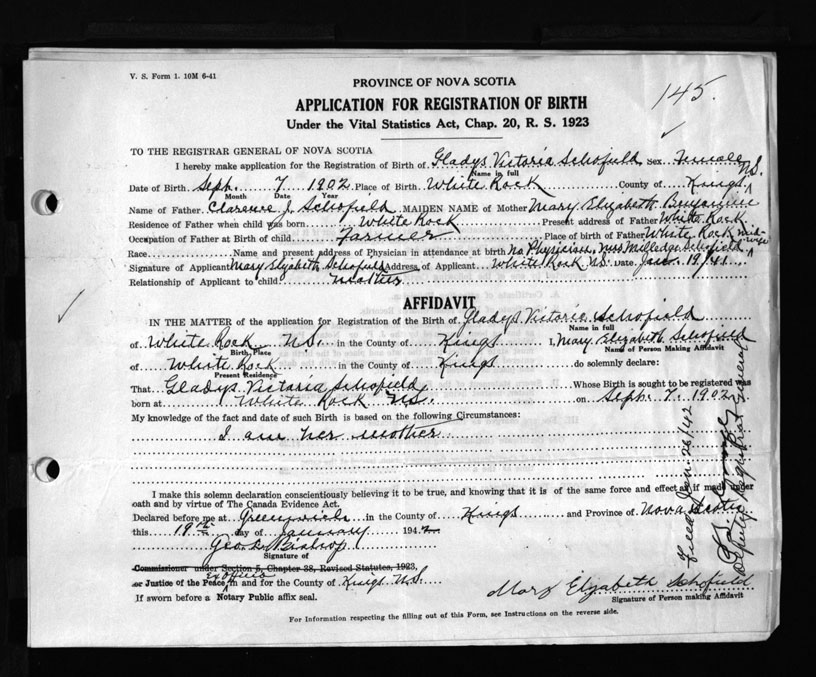 V. S. Form 1. 10M 6-41
PROVINCE OF NOVA SCOTIA
145.
APPLICATION FOR REGISTRATION OF BIRTH
Under the Vital Statistics Act, Chap. 20, R. S. 1923
TO THE REGISTRAR GENERAL OF NOVA SCOTIA
I hereby make application for the Registration of Birth of Gladys Victoria Schofield Sex Female
Name in full
Date of Birth Seph. 7 1902 Place of Birth White Rock County of Kings N.S.
Month Date Year
Name of Father Clarence J. Schofield MAIDEN NAME of Mother Mary Elizabeth Benjamin
Residence of Father when child was born White Rock Present address of Father White Rock
Occupation of Father at Birth of child Farmer Place of birth of Father White Rock
Race Name and present address of Physician in attendance at birth No Physician, Mrs Milledge Schofield mid-wife
Signature of Applicant Mary Elizabeth Schofield Address of Applicant White Rock N.S. Date Jan. 19/41
Relationship of Applicant to child mother
AFFIDAVIT
IN THE MATTER of the application for Registration of the Birth of Gladys Victoria Schofield
Name in full
of White Rock N.S. in the County of Kings I, Mary Elizabeth Schofield
Birth Place Name of Person Making Affidavit
of White Rock in the County of Kings do solemnly declare:
Present Residence
That Gladys Victoria Schofield Whose Birth is sought to be registered was
born at White Rock N.S. on Seph. 7. 1902
My knowledge of the fact and date of such Birth is based on the following Circumstances:
I am her mother
I make this solemn declaration conscientiously believing it to be true, and knowing that it is of the same force and effect as if made under
oath and by virtue of The Canada Evidence Act.
Declared before me at Greenwich in the County of Kings and Province of Nova Scotia
this 19th day of January 1942
Geo. L. Bishop
Signature of
Commissioner under Section 5, Chapter 38, Revised Statutes, 1923,
or Justice of the Peace in and for the County of Kings N.S.
Exofficio
If sworn before a Notary Public affix seal.
Mary Elizabeth Schofield
Signature of Person making Affidavit
For Information respecting the filling out of this Form, see Instructions on the reverse side.
Filed Jan 26/42
Deputy Registrar General